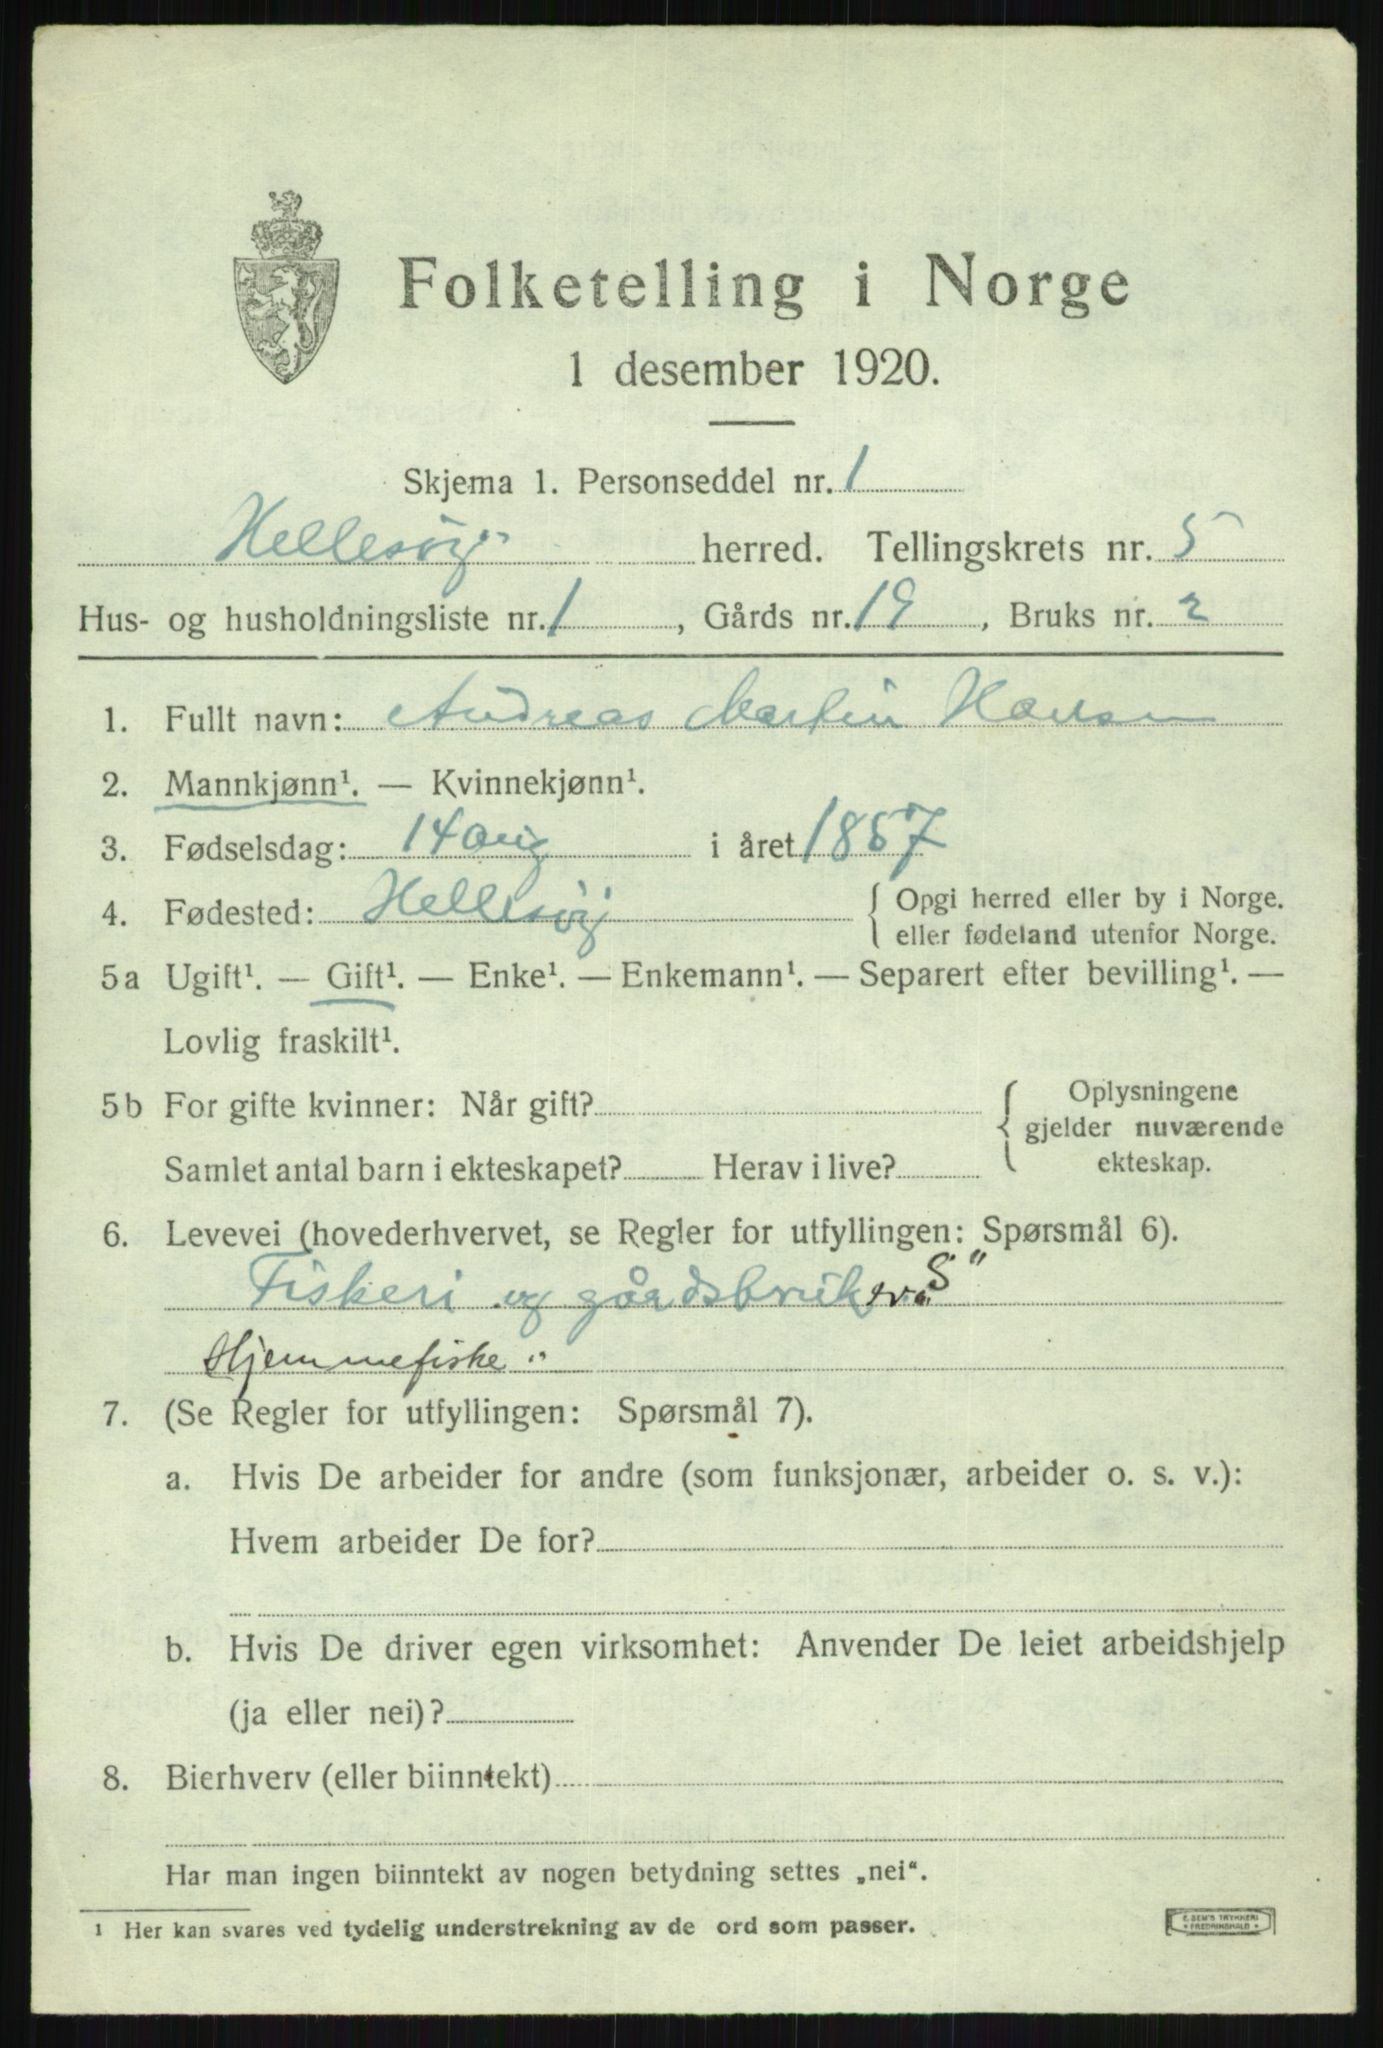 Folketelling i Norge
1 desember 1920.
Skjema 1. Personseddel nr. 1
Hellesøy herred. Tellingskrets nr. 5
Hus- og husholdningsliste nr. 1, Gårds nr. 19, Bruks nr. 2
1. Fullt navn: Andreas Martin Hansen
2. Mannkjønn¹. — Kvinnekjønn¹.
3. Fødselsdag: 14 aug i året 1857
4. Fødested: Hellesøy { Opgi herred eller by i Norge.
eller fødeland utenfor Norge.
5a Ugift¹. — Gift¹. — Enke¹. — Enkemann¹. — Separert efter bevilling¹. —
Lovlig fraskilt¹.
5b For gifte kvinner: Når gift? { Oplysningene
gjelder nuværende
Samlet antal barn i ekteskapet? Herav i live? ekteskap.
6. Levevei (hovederhvervet, se Regler for utfyllingen: Spørsmål 6).
Fiskeri og gårdsbruk S"
Hjemmefiske "
7. (Se Regler for utfyllingen: Spørsmål 7).
a. Hvis De arbeider for andre (som funksjonær, arbeider o. s. v.):
Hvem arbeider De for?
b. Hvis De driver egen virksomhet: Anvender De leiet arbeidshjelp
(ja eller nei)?
8. Bierhverv (eller biinntekt)
Har man ingen biinntekt av nogen betydning settes „nei“.
1 Her kan svares ved tydelig understrekning av de ord som passer.
E. SEM'S TRYKKERI
FREDRIKSHALD